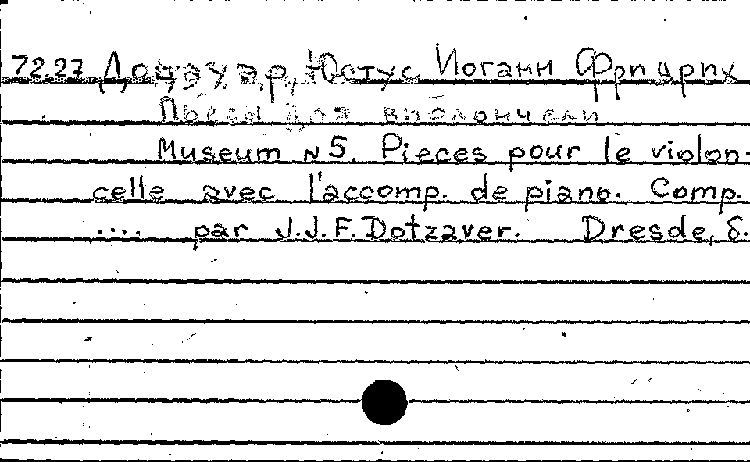 7227 Доцауэр, Юстус Иоганн Фридрих
Пьесы для виолончели
Museum N 5. Pieces pour le violon-
celle avec l'accomp. de piano. Comp.
.... par J.J.F. Dotzaver. Dresde, б.